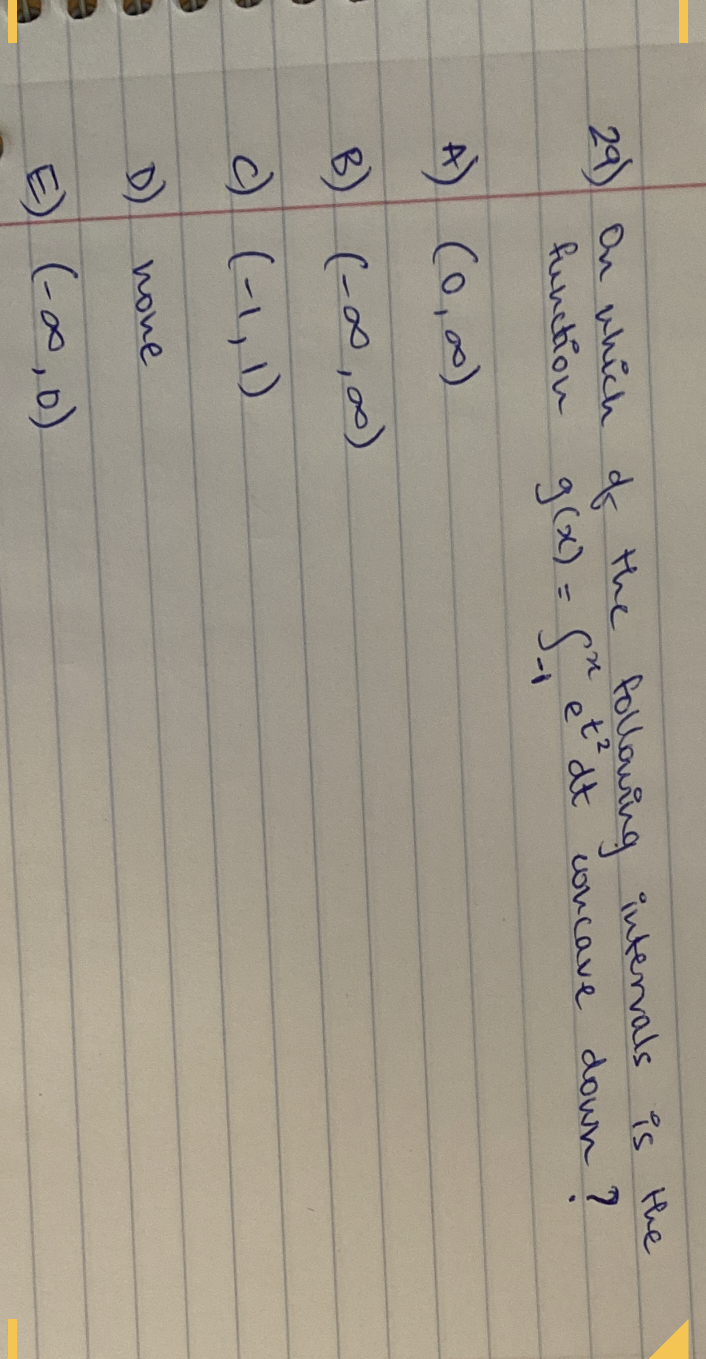 29) On which of the following intervals is the
function g(x) = ∫₋₁ˣ e^t² dt concave down?
A) (0, ∞)
B) (-∞, ∞)
C) (-1, 1)
D) none
E) (-∞, 0)